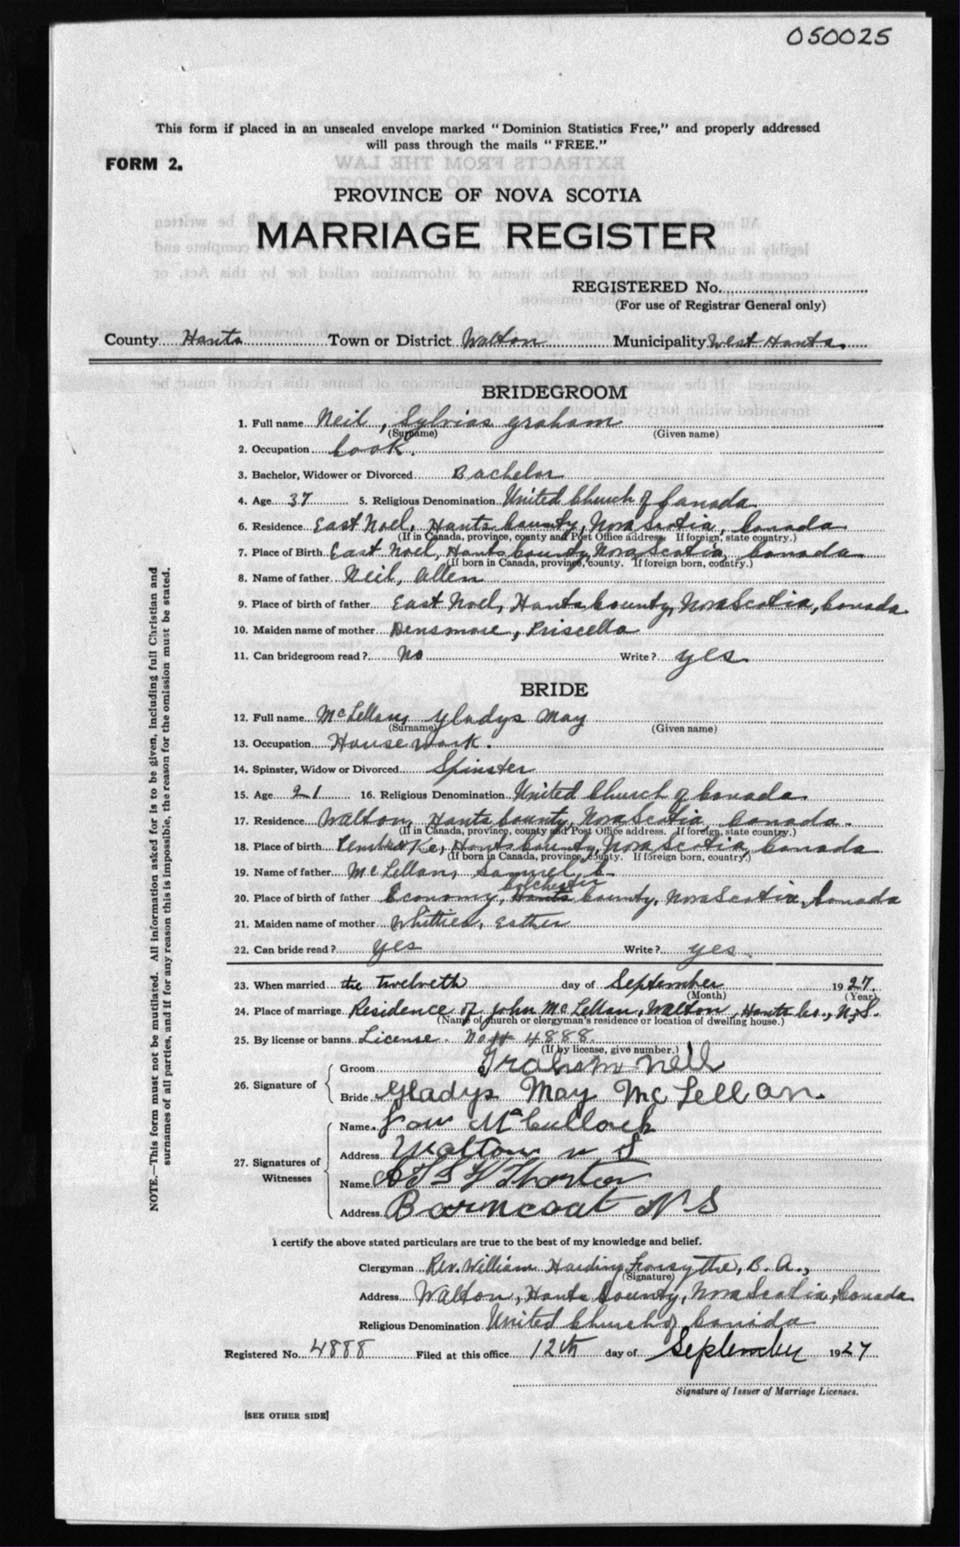 050025
This form if placed in an unsealed envelope marked "Dominion Statistics Free," and properly addressed
will pass through the mails "FREE."
FORM 2.
PROVINCE OF NOVA SCOTIA
MARRIAGE REGISTER
REGISTERED No.
(For use of Registrar General only)
County Hants Town or District Walton Municipality West Hants.
BRIDEGROOM
1. Full name Neil, Sylvias Graham
(Surname) (Given name)
2. Occupation Cook.
3. Bachelor, Widower or Divorced Bachelor
4. Age 37 5. Religious Denomination United Church of Canada
6. Residence East Noel, Hants County, Nova Scotia, Canada
(If in Canada, province, county and Post Office address. If foreign, state country.)
7. Place of Birth East Noel, Hants County, Nova Scotia, Canada
(If born in Canada, province, county. If foreign born, country.)
8. Name of father Neil, Allen
9. Place of birth of father East Noel, Hants County, Nova Scotia, Canada
10. Maiden name of mother Densmore, Priscella
11. Can bridegroom read? No Write? yes
BRIDE
12. Full name McLellan, Gladys May
(Surname) (Given name)
13. Occupation Housework.
14. Spinster, Widow or Divorced Spinster
15. Age 21 16. Religious Denomination United Church of Canada
17. Residence Walton, Hants County, Nova Scotia, Canada.
(If in Canada, province, county and Post Office address. If foreign, state country.)
18. Place of birth Pembroke, Hants County, Nova Scotia, Canada
(If born in Canada, province, county. If foreign born, country.)
19. Name of father McLellan, Samuel, C.
Colchester
20. Place of birth of father Economy, Hants County, Nova Scotia, Canada
21. Maiden name of mother Whittier, Esther
22. Can bride read? yes Write? yes.
23. When married the twelveth day of September 1927.
(Month) (Year)
24. Place of marriage Residence of John McLellan, Walton, Hants Co., N.S.
(Name of church or clergyman's residence or location of dwelling house.)
25. By license or banns License. No 4888.
(If by license, give number.)
26. Signature of
Groom Graham Neil
Bride Gladys May McLellan.
27. Signatures of Witnesses
Name McCulloch
Address Walton N S
Name Thorton
Address Barncoat N S
I certify the above stated particulars are true to the best of my knowledge and belief.
Clergyman Rev. William Harding Forsythe, B. A.,
(Signature)
Address Walton, Hants County, Nova Scotia, Canada
Religious Denomination United Church of Canada
Registered No. 4888 Filed at this office 12th day of September 1927
Signature of Issuer of Marriage Licenses.
[SEE OTHER SIDE]
NOTE.—This form must not be mutilated. All information asked for is to be given, including full Christian and
surnames of all parties, and if for any reason this is impossible, the reason for the omission must be stated.